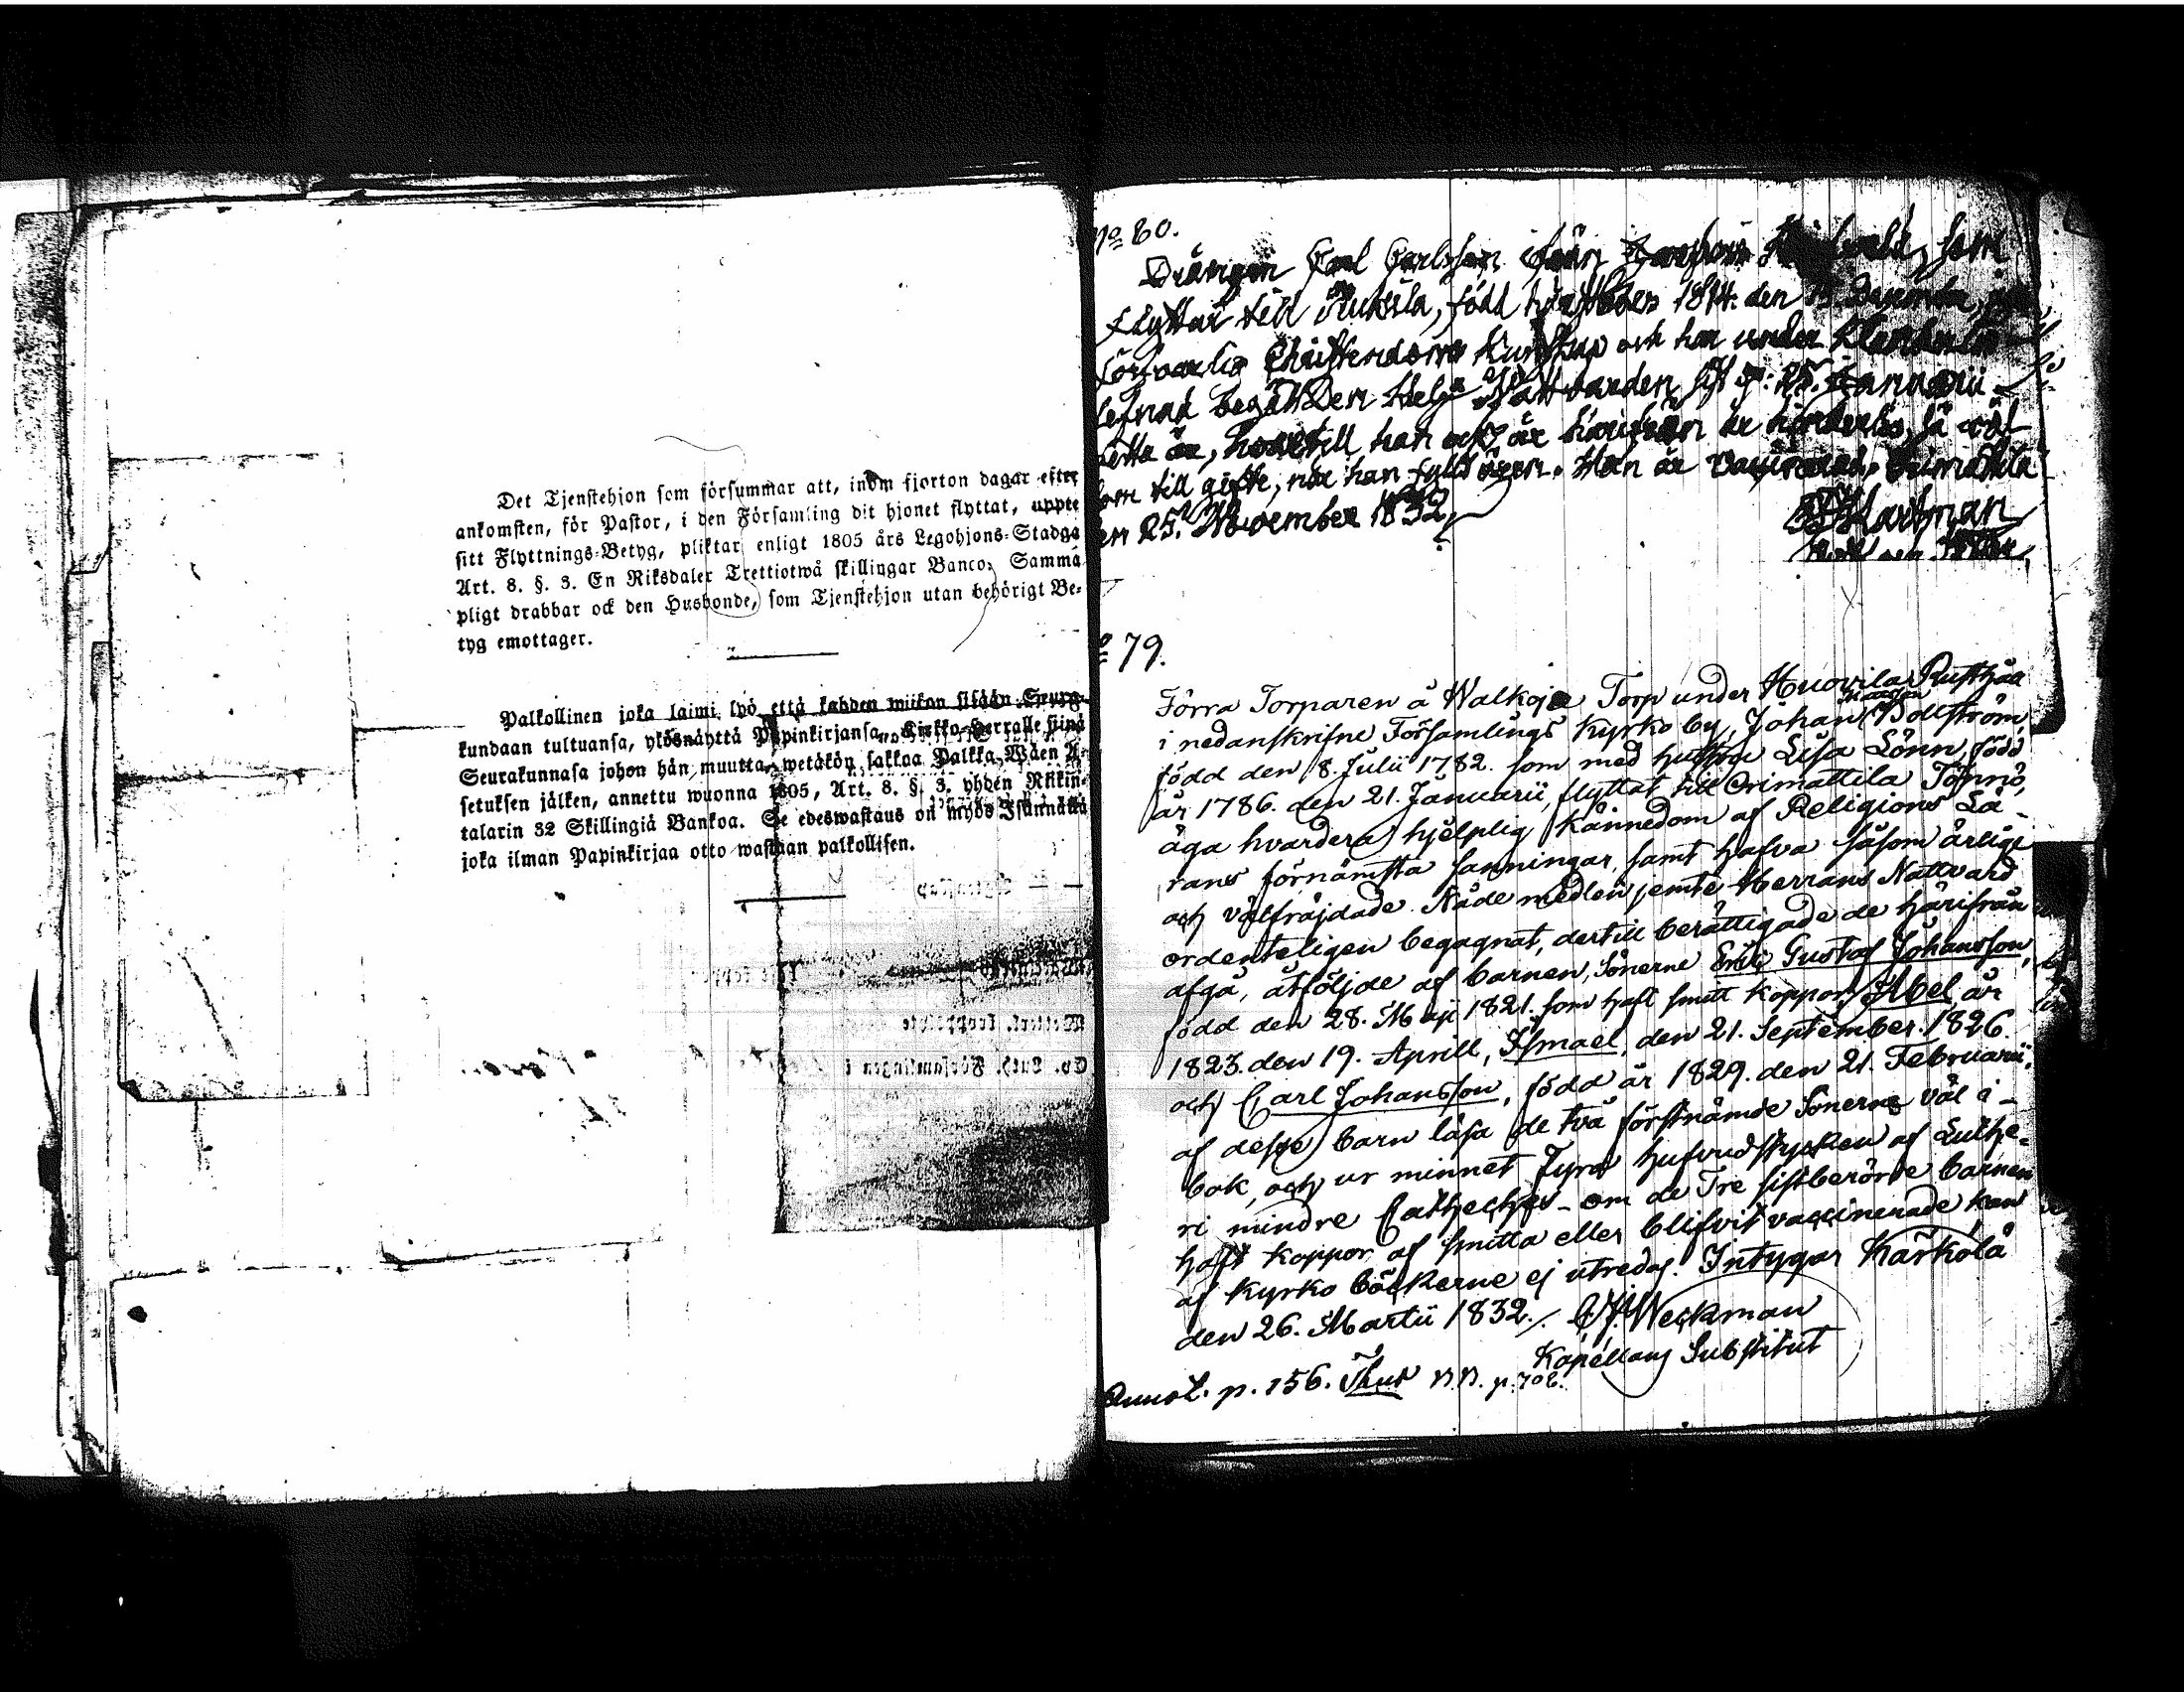 Det Tjenstehjon som försummar att, inom fjorton dagar efter
ankomsten, för Pastor, i den Församling dit hjonet flyttat, uppte
sitt Flyttnings-Betyg, pliktar enligt 1805 års Legohjons-Stadga
Art. 8. §. 3. En Riksdaler Trettiotwå skillingar Banco. Samma
pligt drabbar ock den Husbonde, som Tjenstehjon utan behörigt Be-
tyg emottager.
Palkollinen joka laimi lyö että kahden wiikon sisään Seura-
kundaan tultuansa, ylösnäyttä Papinkirjansa, Kirkko-Herralle siinä
Seurakunnasa johon hän muutta, wetäkön sakkoa Palkka-Wäen A-
setuksen jälken, annettu wuonna 1805, Art. 8. §. 3. yhden Riikin-
talarin 32 Skillingiä Bankoa. Se edeswastaus on myös Isännällä
joka ilman Papinkirjaa otto wastaan palkollisen.
No 80.
Drängen Carl Carlsson från som
flyttar till född 1814 den
Christendoms Kunskap och har under
lefnad begått Den Helg. Nattvarden sist d: 25. Januarii
detta år, hvartill han ock är härifrån är hinderlös, så väl
som till gifte, när han fyllt åren. Han är vaccinerad. Orimattila
den 25. November 1832.
Hartman
No 79.
Förra Torparen å Walkoja Torp under Huovila Rusthåll
i nedanskrifne Församlings Kyrko by, Johan Bollström,
född den 8. Julii 1782. som med hustru Lisa Lönn, född
år 1786. den 21. Januarii, flyttat till Orimattila Tönnö,
äga hvardera hjelplig kännedom af Religions Lä-
rans förnämsta sanningar, samt hafva såsom ärlige
och välfrejdade Nådemedlen jemte Herrans Nattvard
ordenteligen begagnat, dertill berättigade de härifrån
afgå, åtföljde af barnen, Sönerne Eric Gustaf Johansson,
född den 28. Maji 1821. som haft smitt koppor, Abel, år
1823. den 19. Aprill, Ismael, den 21. September. 1826.
och Carl Johansson, född år 1829. den 21. Februarii;
af desse barn läsa de två förstnämde Sönerne väl i
bok, och ur minnet Fyra hufvudstycken af Luthe-
ri mindre Catheches - om de Tre sistberörde barnen
haft koppor af smitta eller blifvit vaccinerade kan
af Kyrko böckerne ej utredas. Intygar Kärkölä
den 26. Martii 1832. Weckman
Kapellans Substitut
Annot. p. 156.